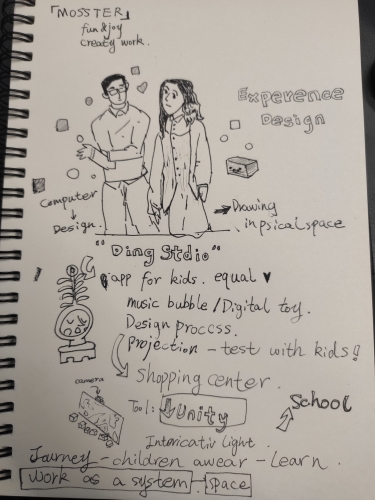 「MOSSTER」
fun & joy
creaty work.
Experence
Design
Computer
↓
Design.
→Drawing
in psical space
"Ding Stdio"
app for kids. equal ♥
music bubble / Digital toy.
Design proccss.
projection - test with kids!
Shopping center.
camera
Tool: Unity
School
Intericativ light.
Journey - children awear - learn.
Work as a system - space